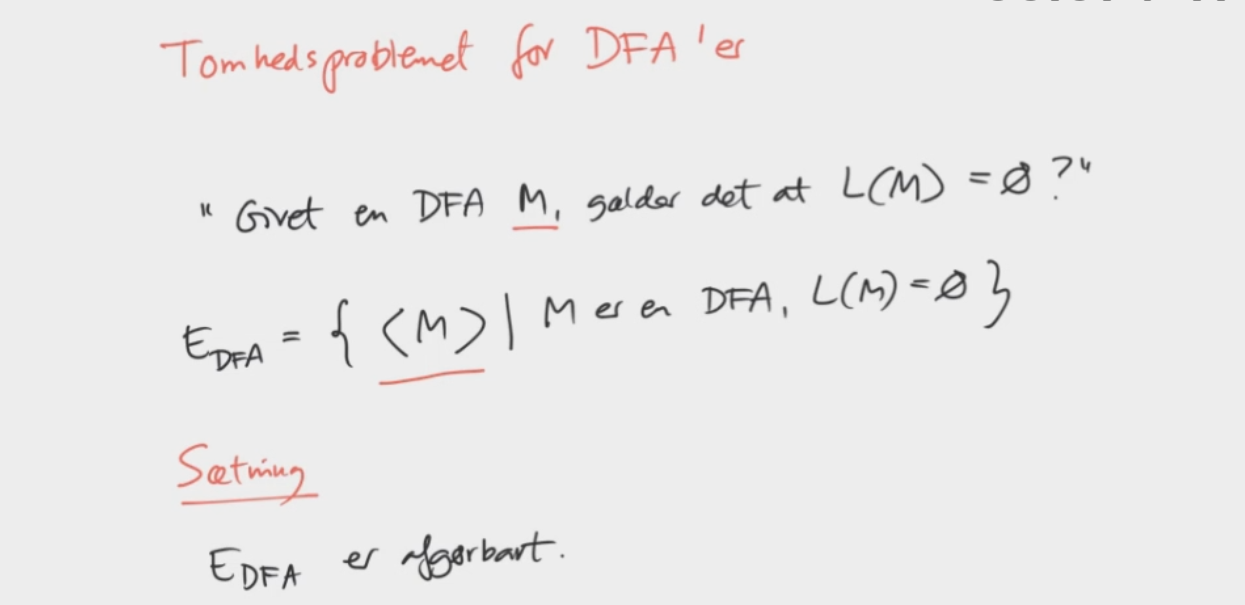 Tomhedsproblemet for DFA'er
"Givet en DFA M, gælder det at L(M) = ∅ ?"
E_DFA = { ⟨M⟩ | M er en DFA, L(M) = ∅ }
Sætning
E_DFA er afgørbart.